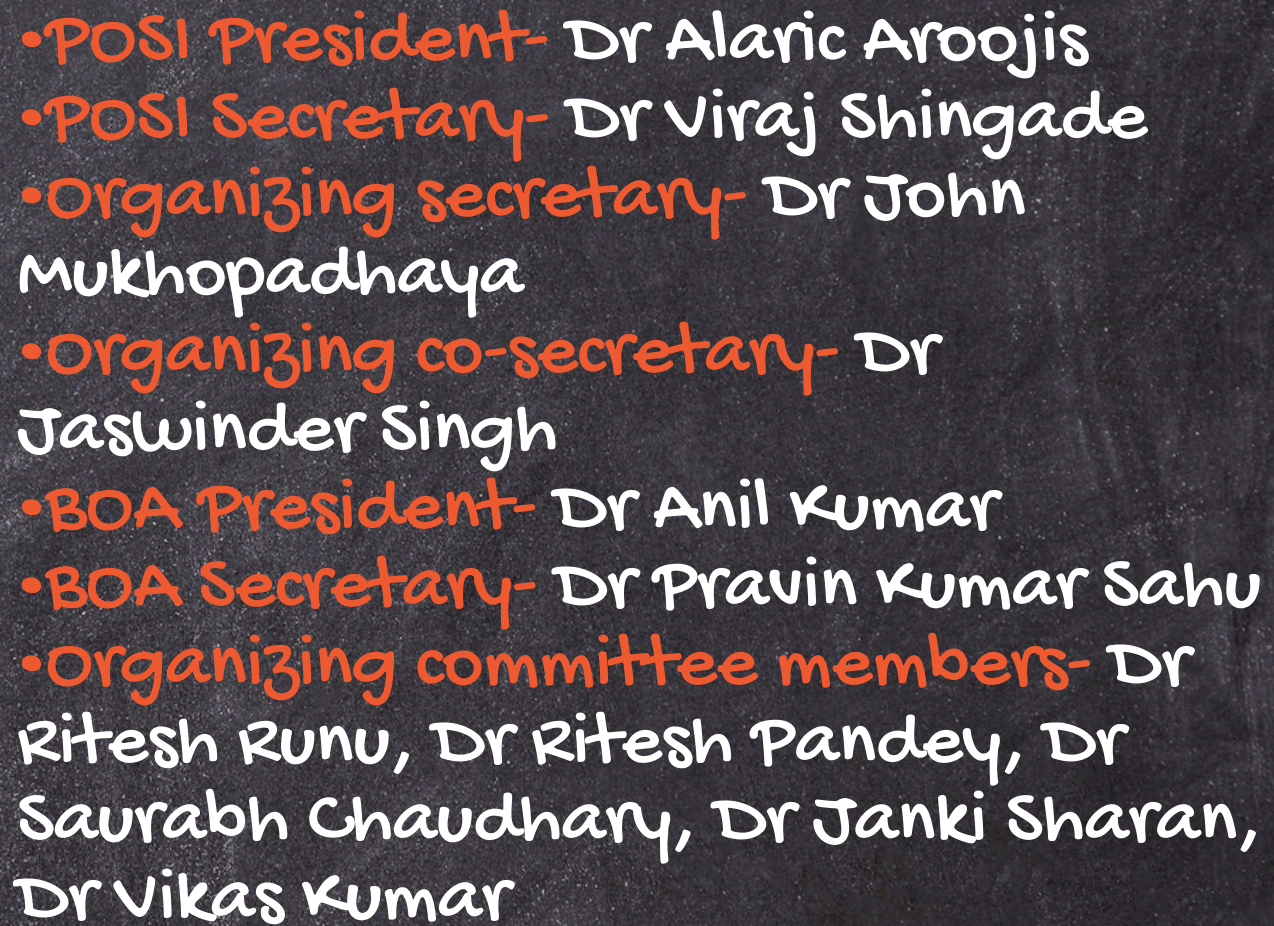 •POSI President- Dr Alaric Aroojis
•POSI Secretary- Dr Viraj Shingade
•Organizing secretary- Dr John
Mukhopadhaya
•Organizing co-secretary- Dr
Jaswinder Singh
•BOA President- Dr Anil Kumar
•BOA Secretary- Dr Pravin Kumar Sahu
•Organizing committee members- Dr
Ritesh Runu, Dr Ritesh Pandey, Dr
Saurabh Chaudhary, Dr Janki Sharan,
Dr Vikas Kumar